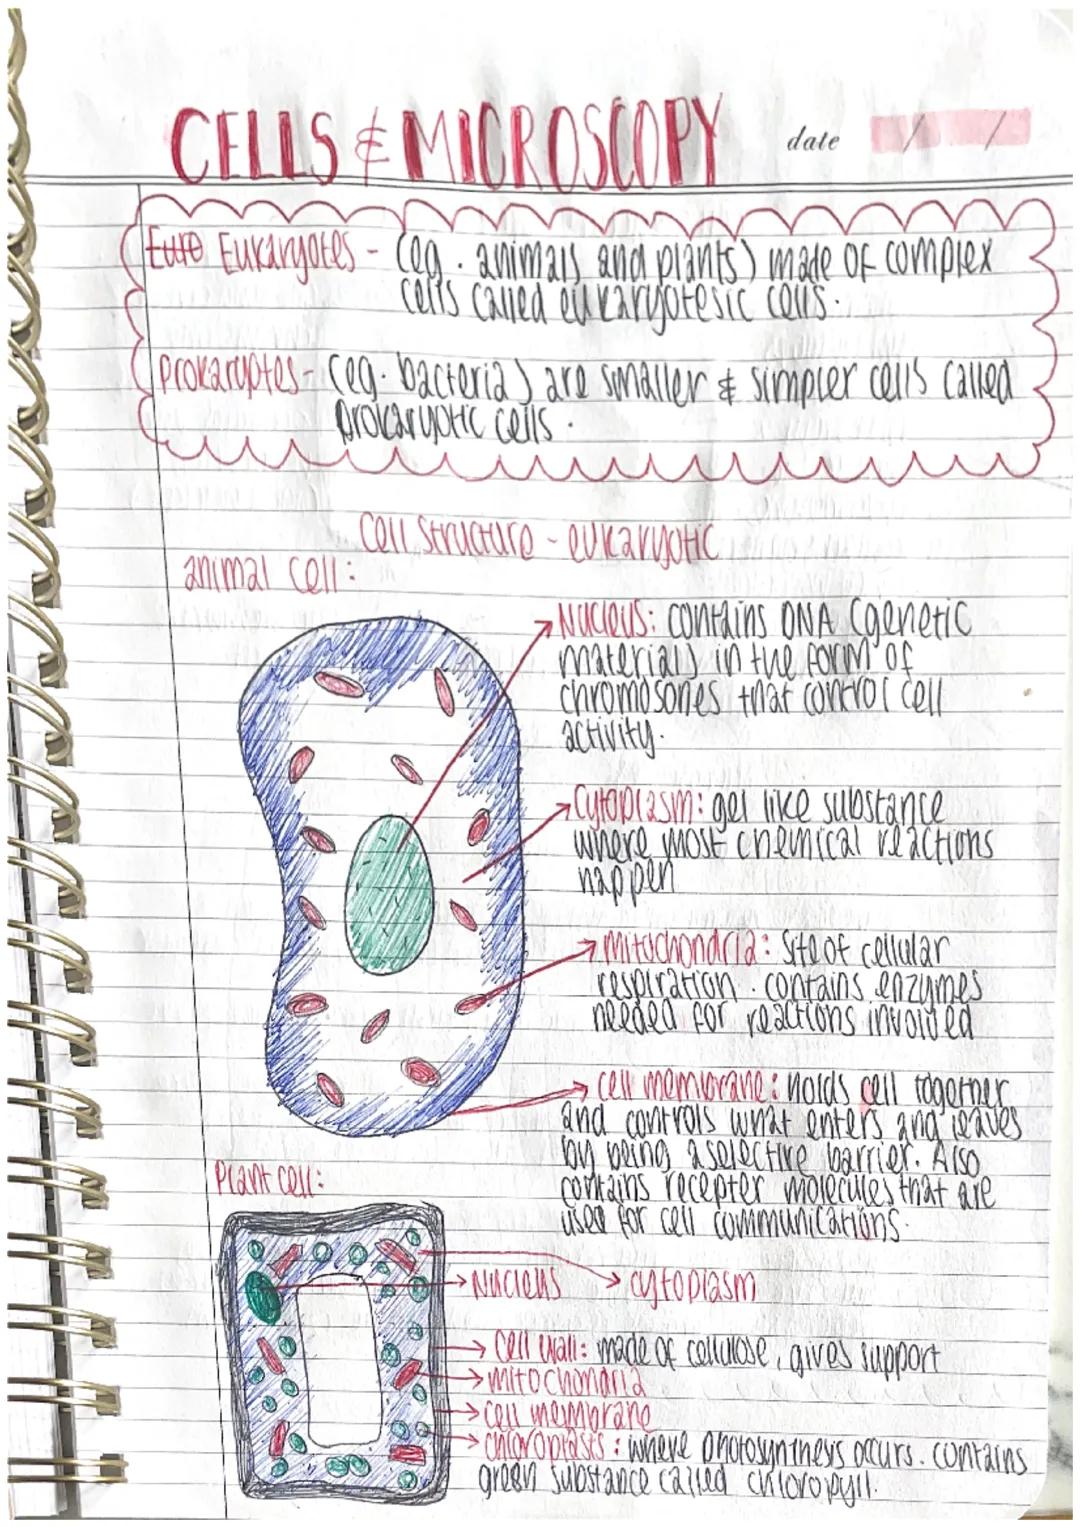 CELLS & MICROSCOPY
date / /
Eukaryotes - (eg. animals and plants) made of complex
cells called eukaryotesic cells.
prokaryotes - (eg. bacteria) are smaller & simpler cells called
prokaryotic cells.
Cell structure - eukaryotic
animal cell:
Nucleus: contains DNA (genetic
material) in the form of
chromosones that control cell
activity.
Cytoplasm: gel like substance
where most chemical reactions
happen
mitochondria: site of cellular
respiration. contains enzymes
needed for reactions involved
cell membrane: holds cell together
and controls what enters and leaves
by being a selective barrier. Also
contains recepter molecules that are
used for cell communications.
Plant cell:
Nucleus
cytoplasm
Cell wall: made of cellulose, gives support
mitochondria
cell membrane
chloroplasts: where photosyntheys occurs. contains
green substance called chloropyll.